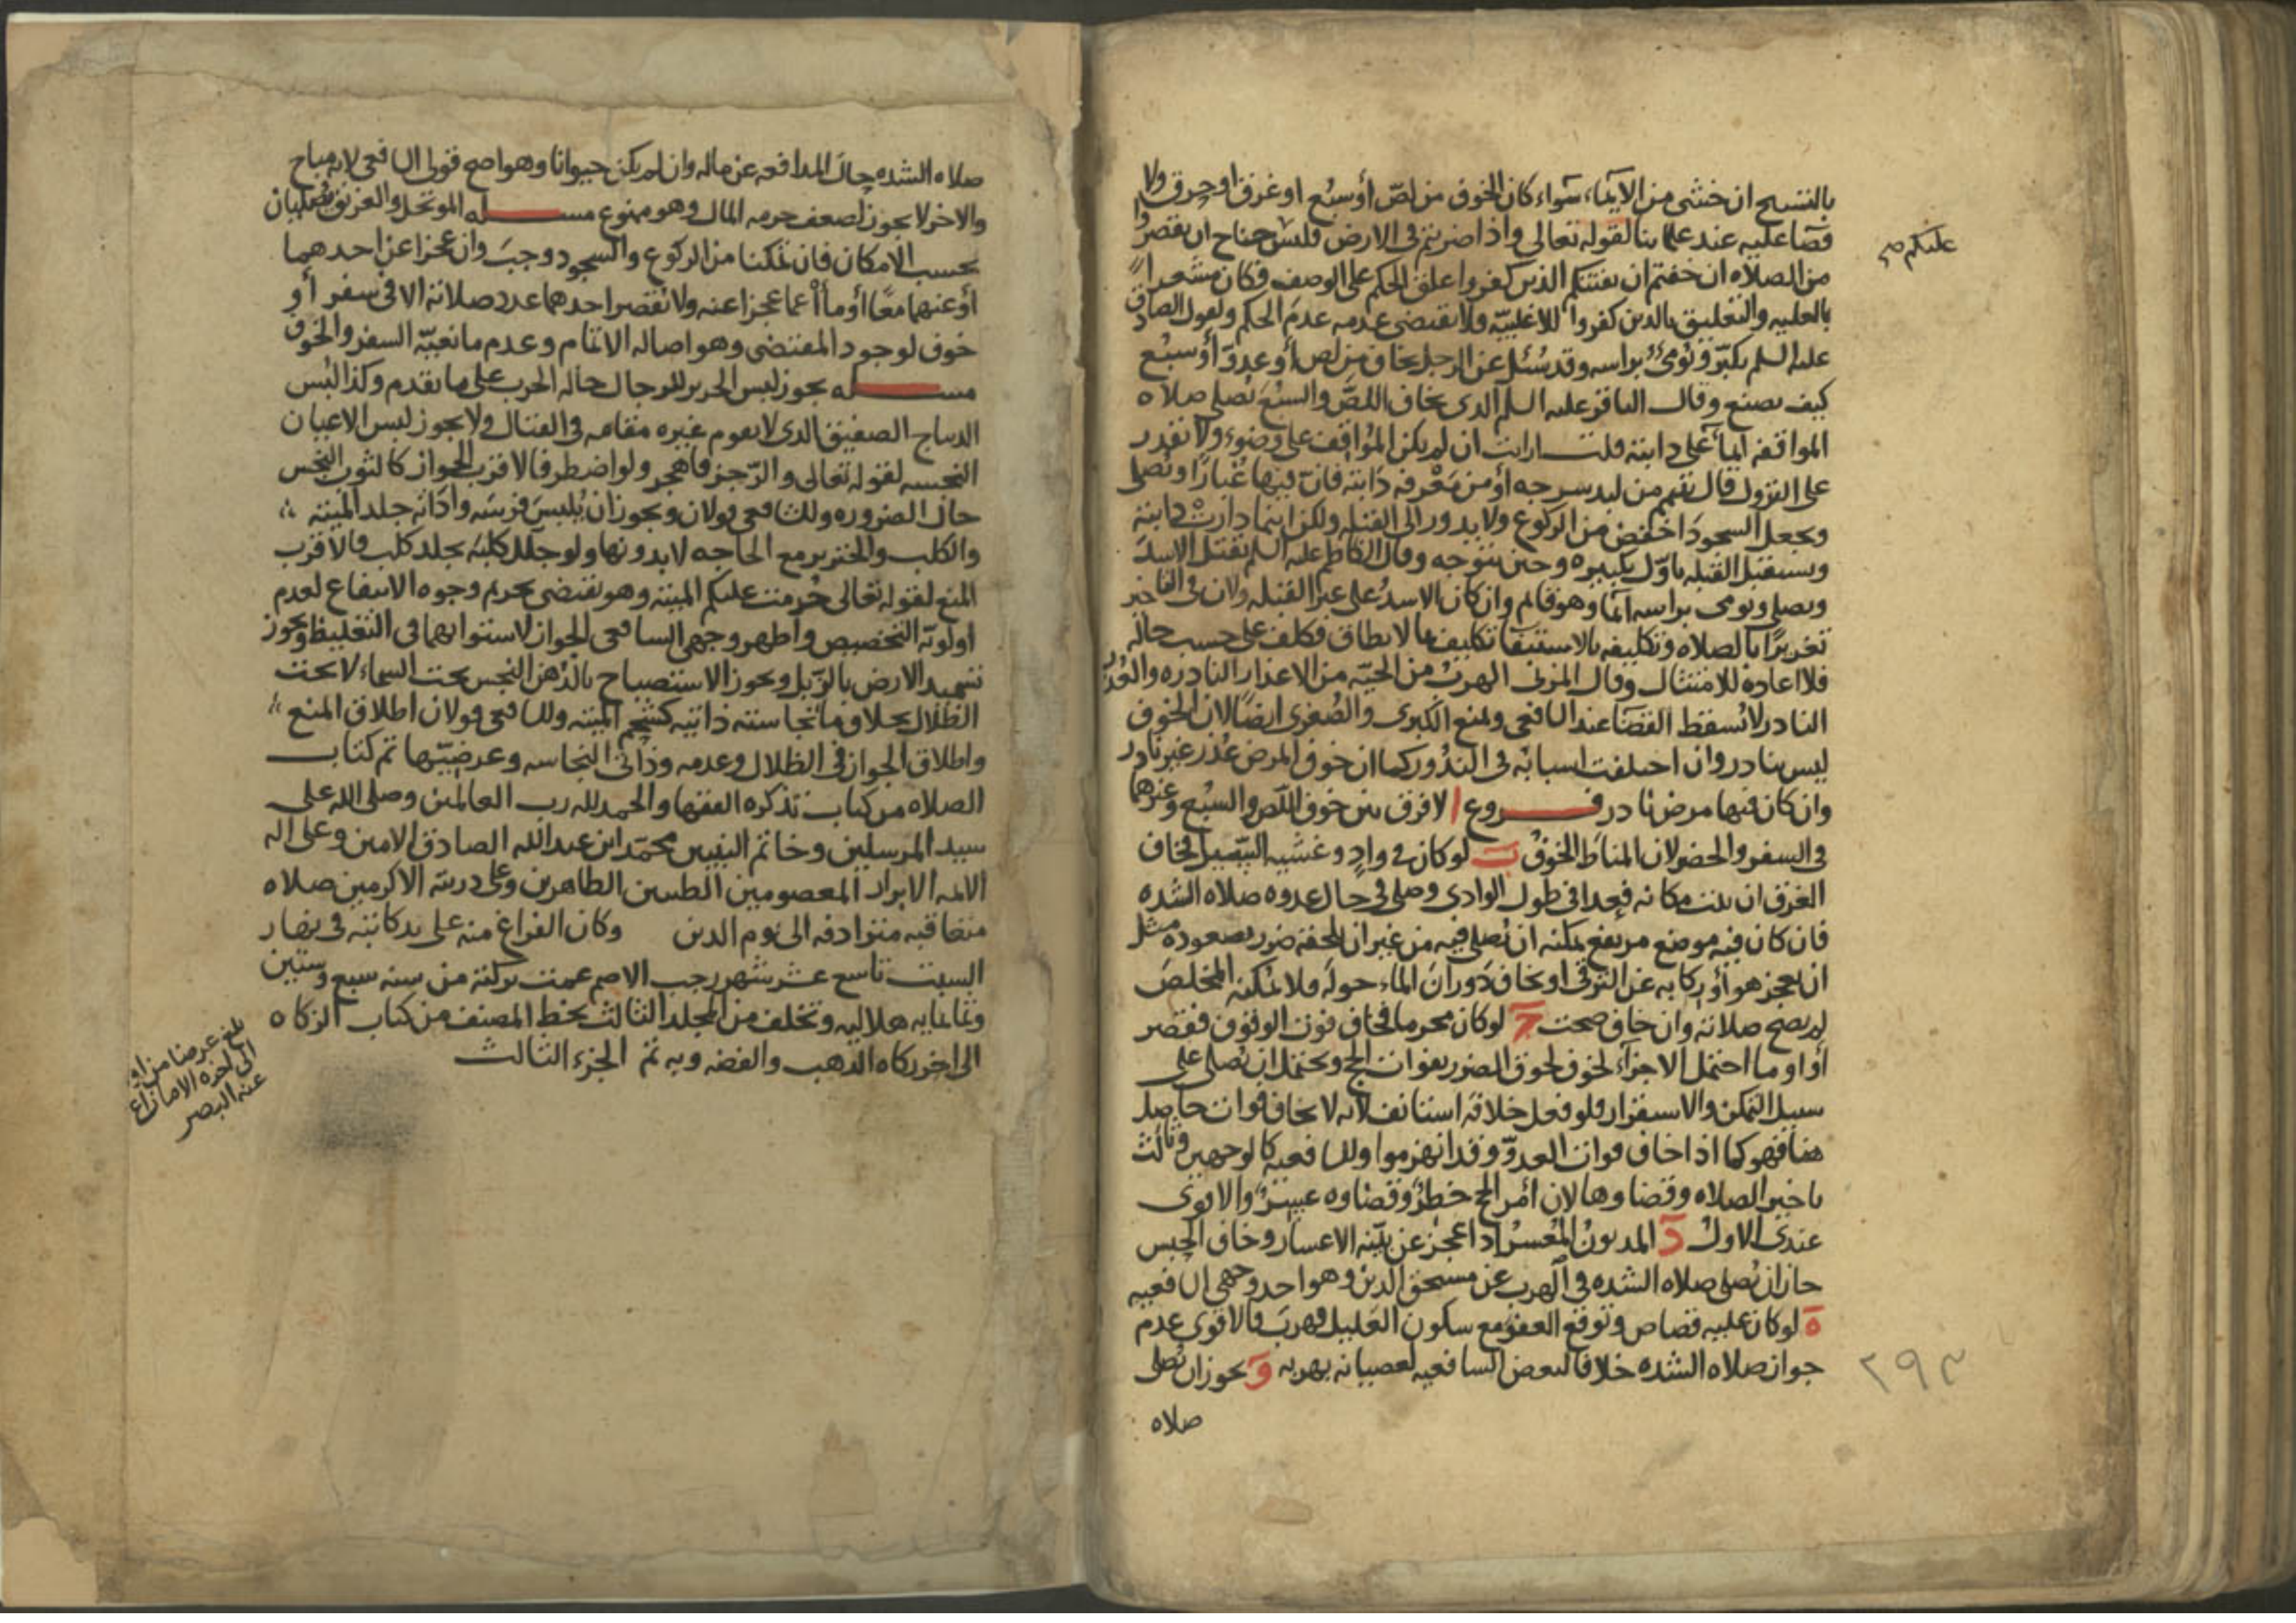 بالتسبيح ان خشي من الايماء سواء كان الخوف من لص أو سبع او غرق او حرق ولا
قضا عليه عند علمائنا لقوله تعالى واذا ضربتم في الارض فليس جناح ان تقصروا
عليكم صح
من الصلاه ان خفتم ان يفتنكم الذين كفروا علق الحكم على الوصف فكان مشعرا
بالعليه والتعليق بالذين كفروا للاغلبيّه ولا يقتضي عدمه عدم الحكم ولقول الصادق
عليه السلم يكبّر ويومئ براسه وقد سُئل عن الرجل يخاف من لص أو عدوّ أو سبُع
كيف يصنع وقال الباقر عليه السلم الذي يخاف اللصّ والسبُعَ يُصلي صلاه
المواقفه ايماً على دابته قلت ارايت ان لم يكن المُواقف على وضوء ولا يقدر
على النزول قال تيمم من لبد سرجه أو من مَعْرفه دَابته فانّ فيها غُبارًا ويُصلي
ويجعل السجودَ اخفض من الركوع ولا يدور الى القبله ولكن اينما دارتْ دابته
ويستقبل القبله باوّل تكبيره حين يتوجه وقال الكاظم عليه السلم يقتبل الاسدَ
ويصلي ويومي براسه ايماً وهو قائم وان كان الاسدُ على غير القبله ولان في التاخير
تغريرًا بالصلاه وتكليفه بالاستيفا تكليف بما لا يطاق فكلف على حسب حاله
فلا اعاده للامتثال وقال المزني الهرب من الحيّه من الاعذار النادره والعُذر
النادر لا يُسقط القضا عند الشافعي ونمنع الكبرى والصُغرى ايضًا لان الخوف
ليس بنادر وان اختلفت اسبابه في الندُور كما ان خوف المرض عُذر غير نادر
وان كان فيها مرض نادر فروع ا لا فرق بين خوف اللّص والسبُع وغيرهما
في السفر والحضر لان المناط الخوفُ ب لو كان في وادٍ وغشيه السّيل فخاف
الغرق ان ثبت مكانه فعدا في طول الوادي وصلى في حال عدوه صلاه الشده
فان كان فيه موضع مرتفع يمكنه ان يُصلي فيه من غير ان يلحقه ضرر بصعوده مثل
ان يعجز هو أو ركابه عن الترقي او يخاف دَورانَ الماء حوله فلا يمكنه المخلصَ
لم يصح صلاته وان خاف صحت ج لو كان محرما فخاف فوت الوقوف فقصر
أو اوما احتمل الاجزاء لخوف لحوق الضرر بفوات الحج ويحتمل ان يُصلي على
سبيل التمكن والاستقرار فلو فعل خلافه استانف لانه لا يخاف فوات حاصل
هنا فهو كما اذا خاف فوات العدوّ وقد انهزموا وللشافعيه كالوجهين وثالث
تاخير الصلاه وقضاوها لان أمر الحج خطرٌ وقضاوه عسيرٌ والاقوى
عندي الاولُ د المديون المُعسر اذا عجز عن بيّنه الاعسار وخاف الحبس
جاز ان يُصلي صلاه الشده في الهرب عن مستحق الدين وهو احد وجهي الشافعيه
ه لو كان عليه قصاص وتوقع العفو مع سكون الغليل فهرب فالاقوى عدم
جواز صلاه الشده خلافا لبعض الشافعيه لعصيانه بهربه و يجوز ان يُصلي
صلاه
٢٩٣
صلاه الشده حال المدافعه عن ماله وان لم يكن حيوانا وهو اصح قولي الشافعي لانه مباح
والاخر لا يجوز لضعف حرمه المال وهو ممنوع مسله الموتحل والغريق يُصليان
بحسب الامكان فان تمكنا من الركوع والسجود وجبَ وان عجزا عن احدهما
أو عنهما معًا أو مأأ عما عجزا عنه ولا يقصر احدهما عدد صلاته الا في سفر أو
خوف لوجود المقتضي وهو اصاله الاتمام وعدم مانعيّه السفر والخوف
مسله يجوز لبس الحرير للرجال حاله الحرب على ما تقدم وكذا لبس
الديباج الصفيق الذي لا يقوم غيره مقامه في القتال ولا يجوز لبس الاعيان
النجسه لقوله تعالى والرّجز فاهجر ولو اضطر فالاقرب الجواز كالثوب النجس
حال الضروره وللشافعي قولان ويجوز ان يُلبسَ فرسَه وادَاته جلد الميته
والكلب والخنزير مع الحاجه لا بدونها ولو جلل كلبَه بجلد كلب فالاقرب
المنع لقوله تعالى حُرمت عليكم الميته وهو يقتضي تحريم وجوه الانتفاع لعدم
اولويّه التخصيص واظهر وجهي الشافعي الجواز لاستوايهما في التغليظ ويجوز
تسميد الارض بالزّبل ويجوز الاستصباح بالدّهن النجس تحت السماء لا تحت
الظلال بخلاف ما نجاسته ذاتيه كشحم الميته وللشافعي قولان اطلاق المنع
واطلاق الجواز في الظلال وعدمه وذاتي النجاسه وعرضيّها تم كتاب
الصلاه من كتاب تذكره الفقها والحمد لله رب العالمين وصلى الله على
سيد المرسلين وخاتم النبيين محمّد ابن عبد الله الصادق الامين وعلى اله
الائمه الابرار المعصومين الطيبين الطاهرين وعلى ذريته الاكرمين صلاه
متعاقبه مترادفه الى يوم الدين وكان الفراغ منه على يد كاتبه في نهار
السبت تاسع عشر شهر رجب الاصم عمت بركته من سنه سبع وستين
وثمانمايه هلاليه وتخلف من المجلد الثالث بخط المصنف من كتاب الزكاه
الى اخر زكاه الذهب والفضه وبه تم الجزء الثالث
بلغ عرضا من اوله
الى اخره الا ما زاغ
عنه البصر